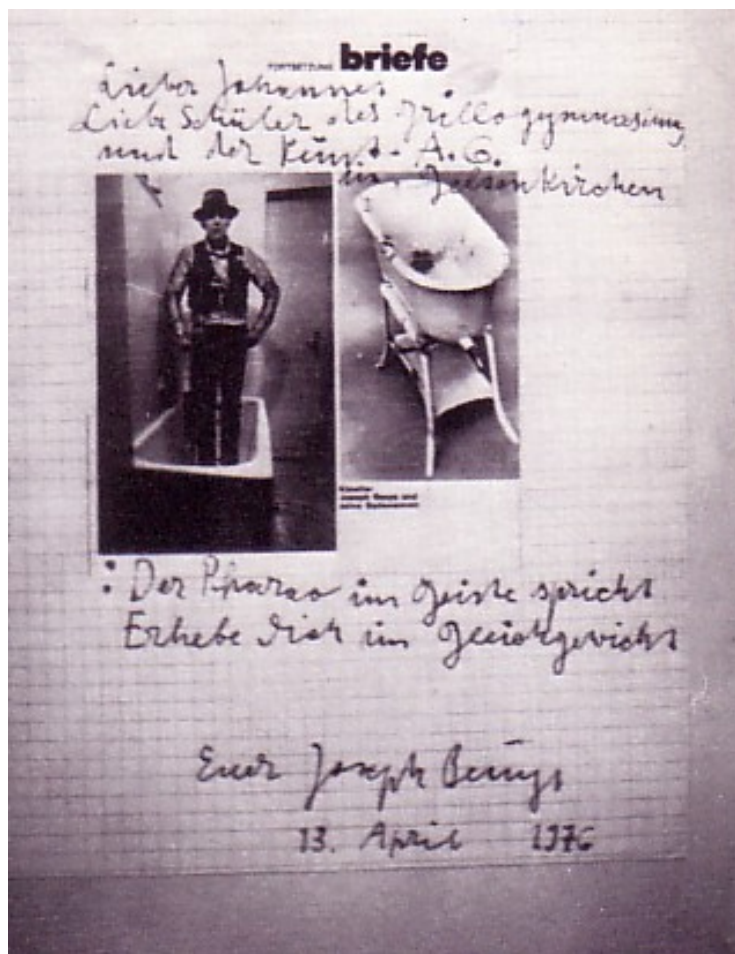 FORTSETZUNG briefe
Lieber Johannes
Liebe Schüler des Grillogymnasiums
und der Kunst-A.G.
in Gelsenkirchen
Künstler
Joseph Beuys und
seine Badewannen
: Der Pharao im Geiste spricht
Erhebe dich im Gleichgewicht
Euer Joseph Beuys
13. April 1976